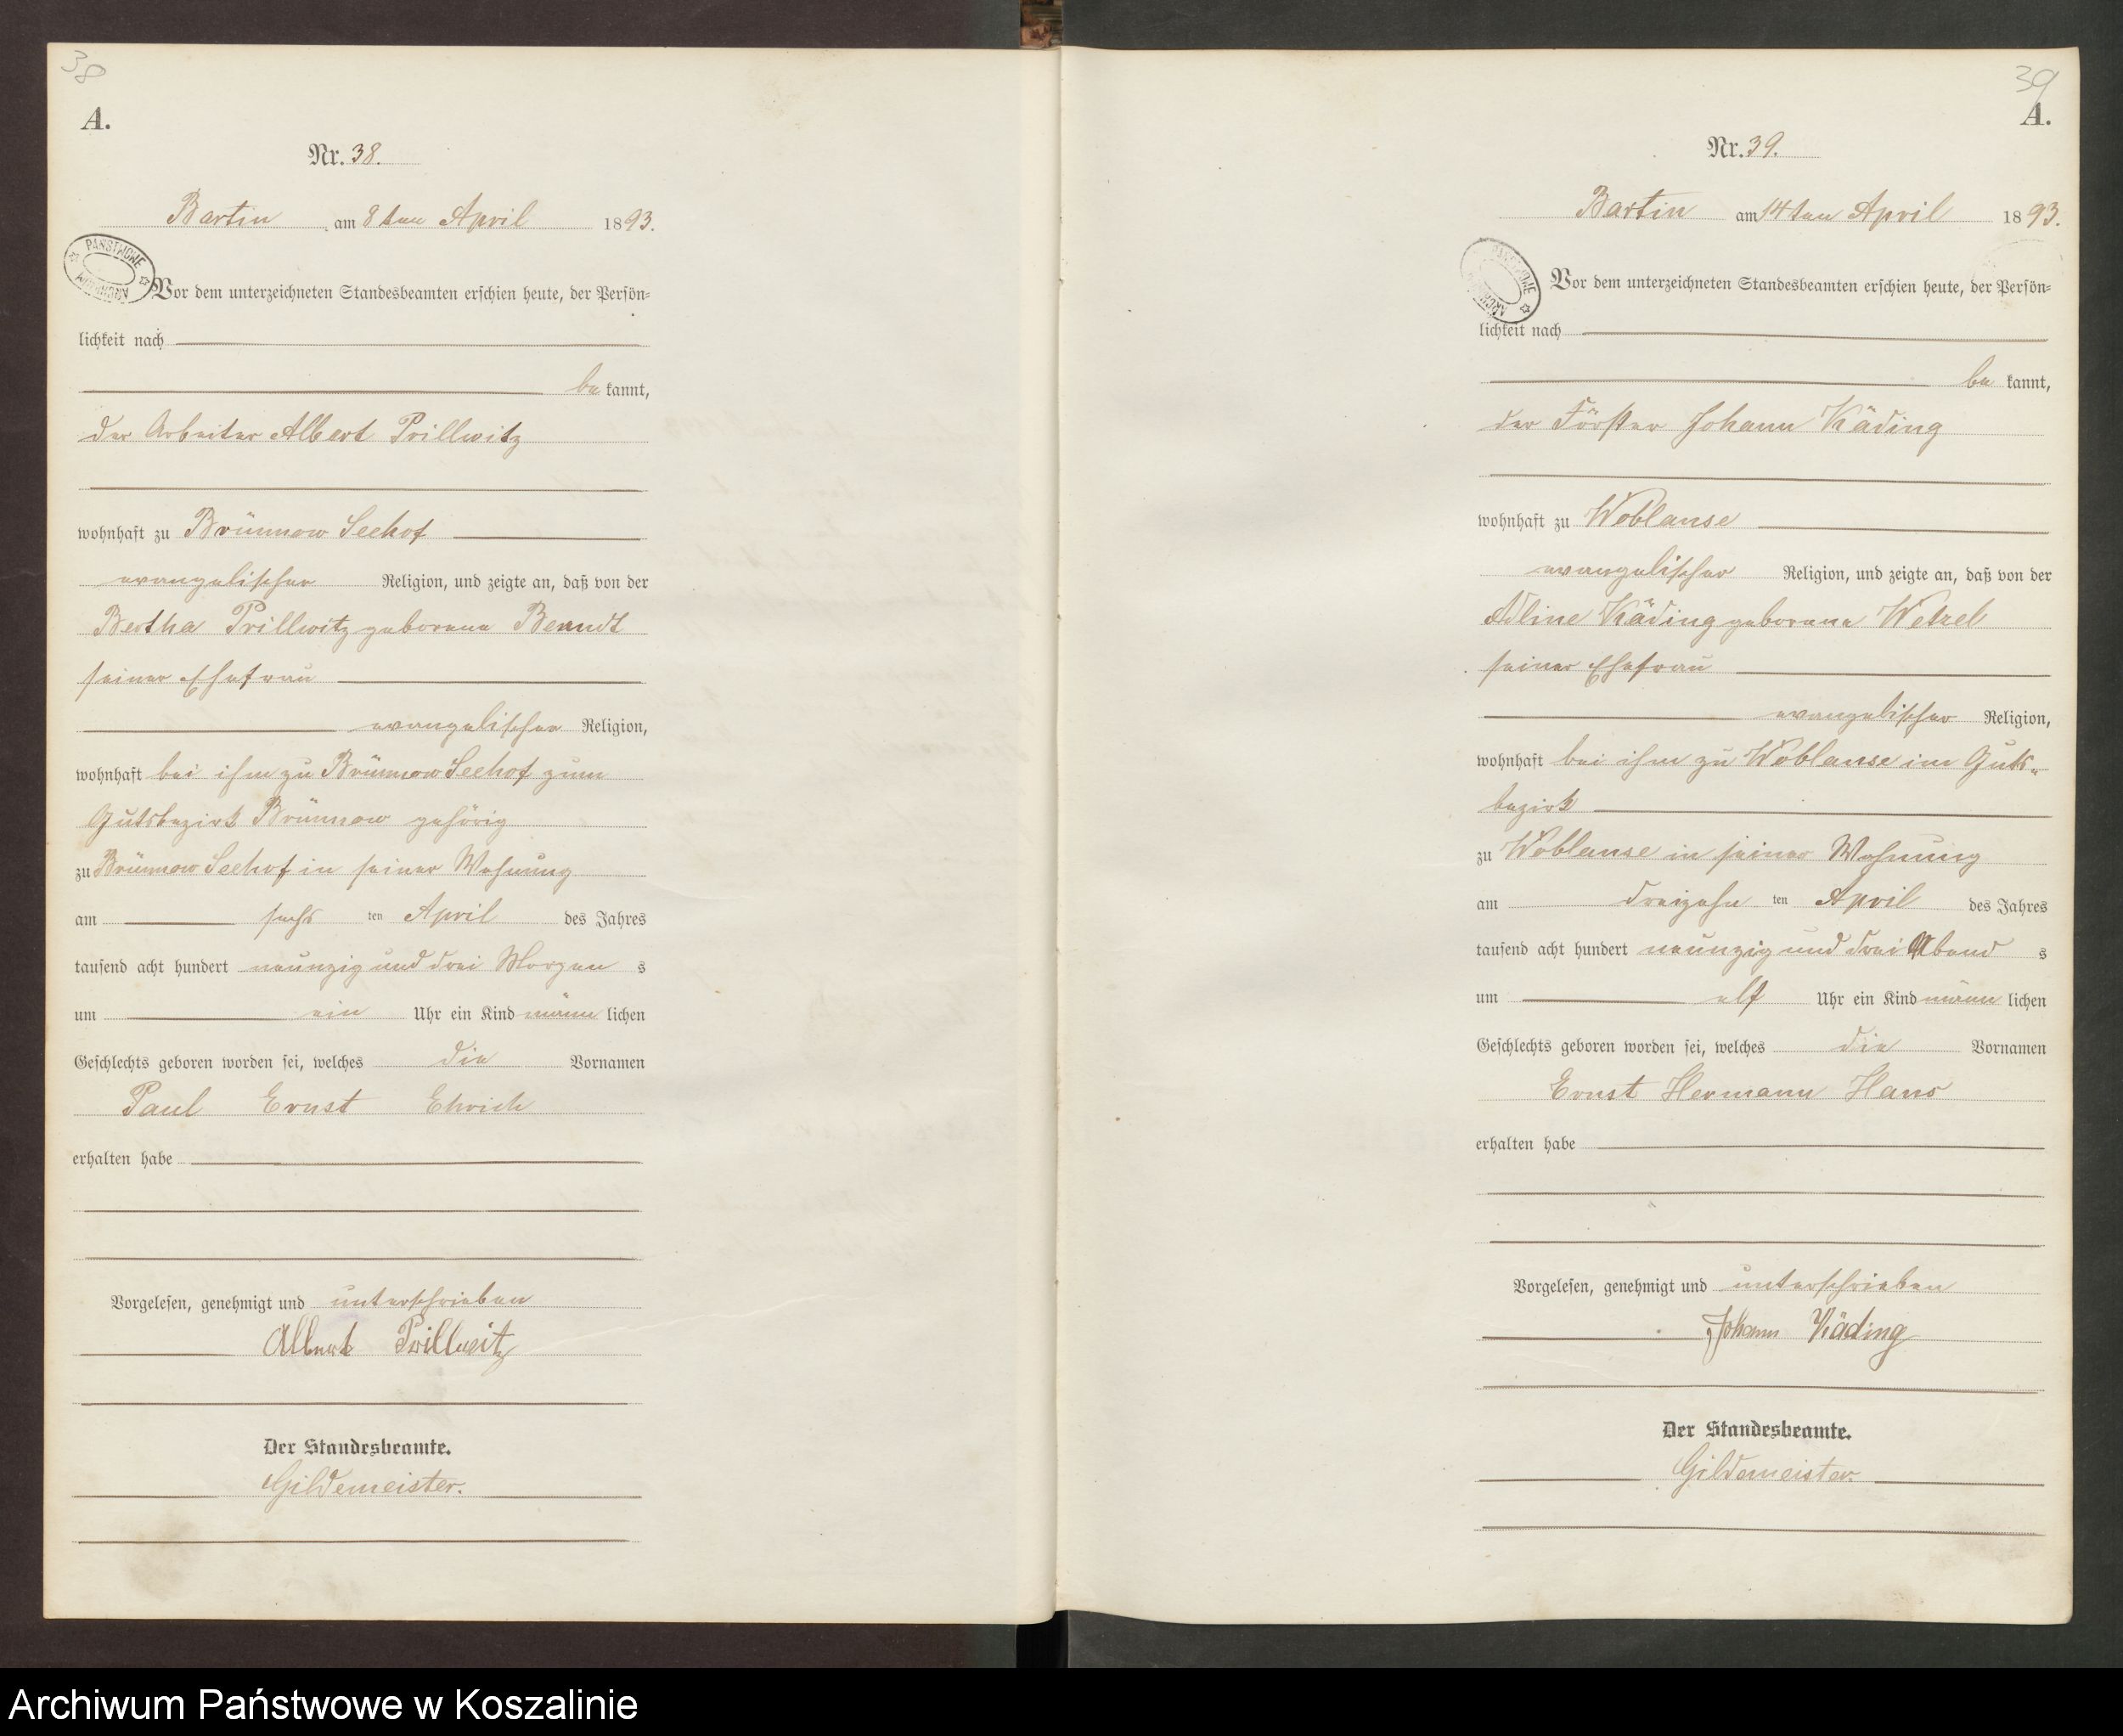 38
A.
Nr. 38.
Bartin, am 8ten April 1893.
PAŃSTWOWE ARCHIWUM
Vor dem unterzeichneten Standesbeamten erschien heute, der Persön-
lichkeit nach
be kannt,
der Arbeiter Albert Prillwitz
wohnhaft zu Brünnow Seehof
evangelischer Religion, und zeigte an, daß von der
Bertha Prillwitz geborene Berndt
seiner Ehefrau
evangelischer Religion,
wohnhaft bei ihm zu Brünnow Seehof zum
Gutsbezirk Brünnow gehörig
zu Brünnow Seehof in seiner Wohnung
am sechs ten April des Jahres
tausend acht hundert neunzig und drei Morgen s
um ein Uhr ein Kind männ lichen
Geschlechts geboren worden sei, welches die Vornamen
Paul Ernst Ehrich
erhalten habe
Vorgelesen, genehmigt und unterschrieben
Albert Prillwitz
Der Standesbeamte.
Gildemeister.
39
A.
Nr. 39.
Bartin am 14ten April 1893.
PAŃSTWOWE ARCHIWUM
Vor dem unterzeichneten Standesbeamten erschien heute, der Persön-
lichkeit nach
be kannt,
der Förster Johann Käding
wohnhaft zu Woblanse
evangelischer Religion, und zeigte an, daß von der
Adline Käding geborene Wetzel
seiner Ehefrau
evangelischer Religion,
wohnhaft bei ihm zu Woblanse im Guts-
bezirk
zu Woblanse in seiner Wohnung
am dreizehn ten April des Jahres
tausend acht hundert neunzig und drei Abend s
um elf Uhr ein Kind männ lichen
Geschlechts geboren worden sei, welches die Vornamen
Ernst Hermann Hans
erhalten habe
Vorgelesen, genehmigt und unterschrieben
Johann Käding
Der Standesbeamte.
Gildemeister.
Archiwum Państwowe w Koszalinie